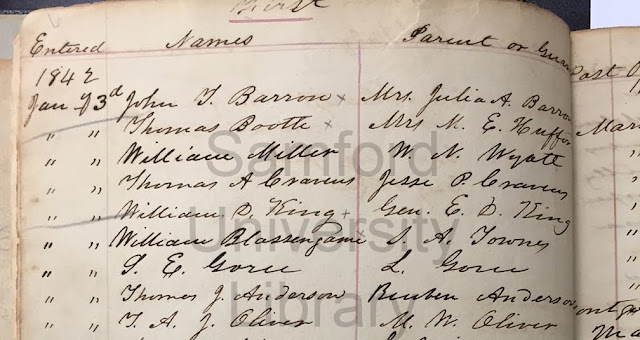 Entered Names Parent or Guar
1842
Jan 3d John T. Barron x Mrs. Julia A. Barro
" " Thomas Booth x Mrs M. E. Huffor Mar
" " William Miller W. N. Wyatt
" " Thomas A Cravens Jesse P. Cravens
" " William D. King x Gen. E. D. King
" " William Blassengame x S. A. Townes
" " S. E. Goree L. Goree
" " Thomas J. Anderson Reuben Anderson
" " T. A. J. Oliver M. W. Oliver
Post
Samford
University
Library